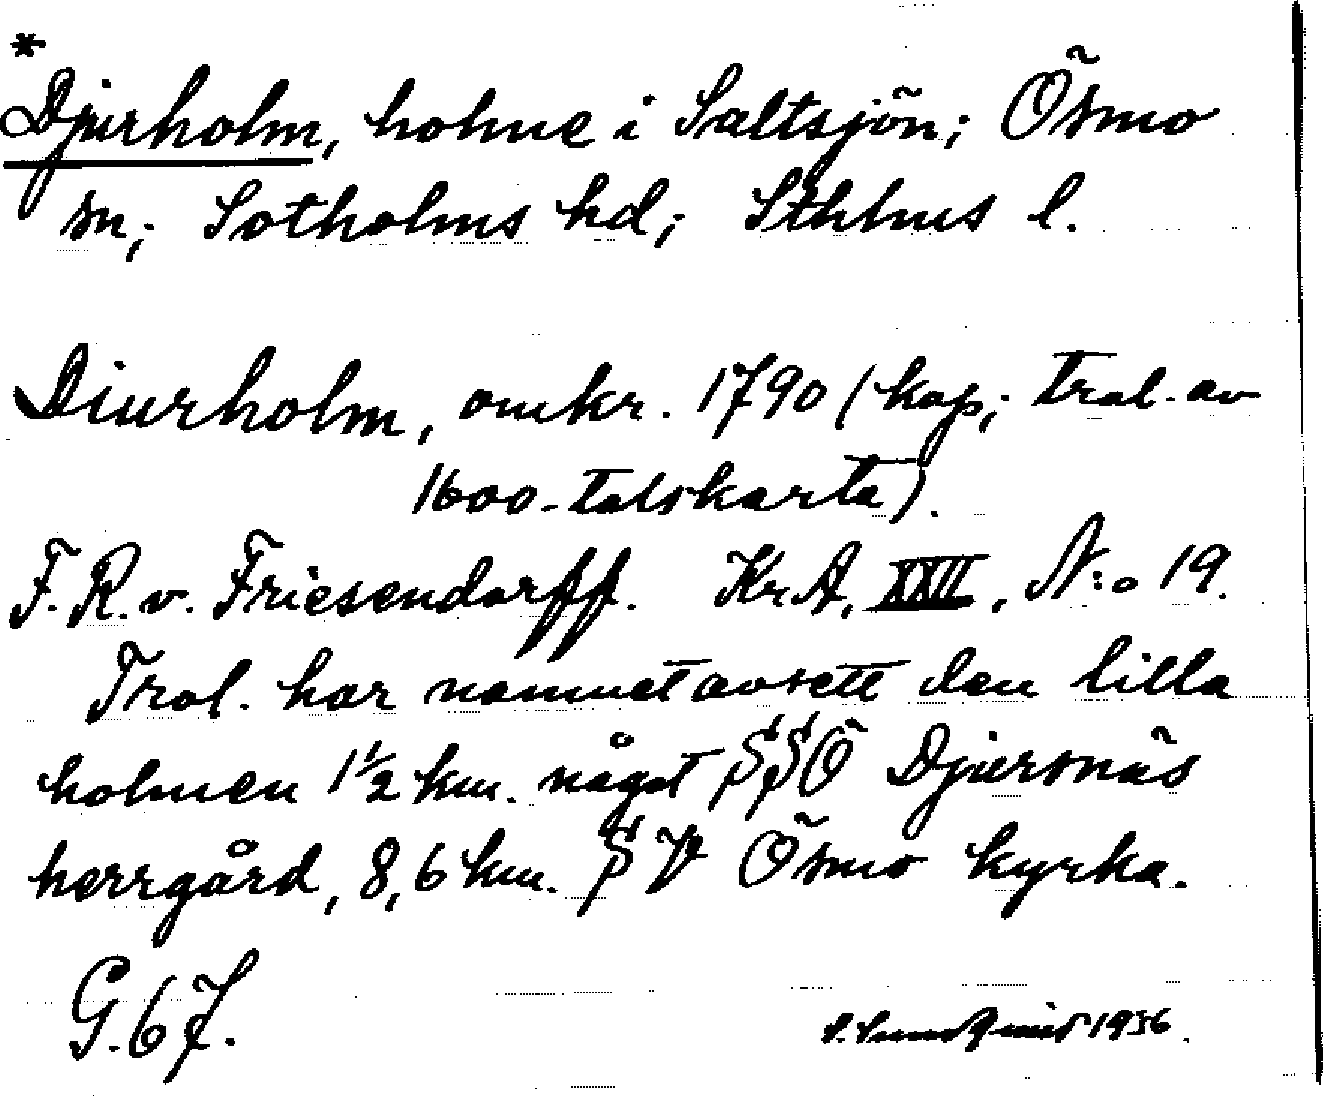 *
Djurholm, holme i Saltsjön; Ösmo
sn; Sotholms hd; Sthlms l.
Diurholm, omkr. 1790 (kop; trol. av
1600-talskarta).
F. R. v. Friesendorff. Kr. A. XXII, N:o 19.
Trol. har namnet avsett den lilla
holmen 1½ km. något SSÖ Djursnäs
herrgård, 8,6 km. SV Ösmo kyrka.
G. 67.
1936.